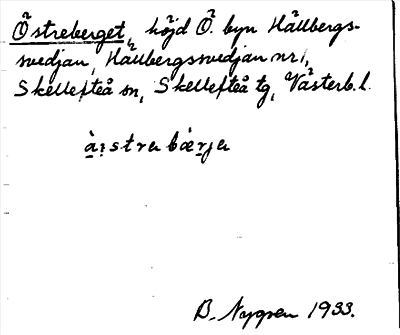 Östreberget, höjd Ö. byn Hällbergs-
svedjan, Hällbergssvedjan nr 1,
Skellefteå sn, Skellefteå tg, Västerb. l.
B. Nygren 1933.